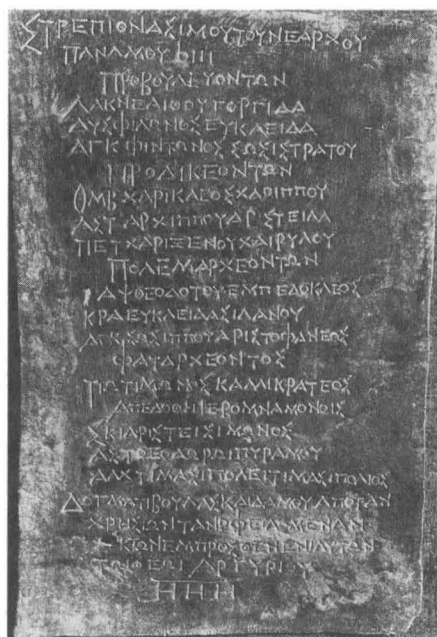 ΣΤΡΕΠΙΟΝΑΣΙΜΟΥΤΟΥΝΕΑΡΧΟΥ
ΠΑΝΑΜΟΥ
ΠΡΟΒΟΥΛΕΥΟΝΤΩΝ
ΛΑΚΝΕΑΙΘΟΥΓΟΡΓΙΔΑ
ΛΥΣΦΙΛΩΝΟΣΕΥΚΛΕΙΔΑ
ΑΓΚΦΙΝΤΩΝΟΣΣΩΣΙΣΤΡΑΤΟΥ
ΠΡΟΔΙΚΕΟΝΤΩΝ
ΟΜΒΧΑΡΙΚΛΕΟΣΧΑΡΙΠΠΟΥ
ΑΣΤΑΡΧΙΠΠΟΥΑΡΙΣΤΕΙΔΑ
ΠΕΤΧΑΡΙΞΕΝΟΥΧΑΙΡΥΛΟΥ
ΠΟΛΕΜΑΡΧΕΟΝΤΩΝ
ΓΑΨΘΕΟΔΟΤΟΥΕΜΠΕΔΟΚΛΕΟΣ
ΚΡΑΕΥΚΛΕΙΔΑΣΙΛΑΝΟΥ
ΑΓΚΣΩΣΙΠΠΟΥΑΡΙΣΤΟΦΑΝΕΟΣ
ΦΑΤΑΡΧΕΟΝΤΟΣ
ΤΙΩΤΙΜΩΝΟΣΚΑΛΛΙΚΡΑΤΕΟΣ
ΑΠΕΔΟΘΗΙΕΡΟΜΝΑΜΟΝΟΙΣ
ΣΚΙΑΡΙΣΤΕΙΣΙΜΩΝΟΣ
ΑΣΤΘΕΟΔΩΡΩΙΠΥΡΑΜΟΥ
ΑΛΧΤΙΜΑΣΙΠΟΛΕΙΤΙΜΑΣΙΠΟΛΙΟΣ
ΔΟΓΜΑΤΙΒΟΥΛΑΣΚΑΙΔΑΜΟΥΑΠΟΤΑΝ
ΧΡΗΣΩΝΤΑΝΟΦΕΙΛΑΜΕΝΑΝ
ΕΚΤΩΝΕΜΠΡΟΣΘΕΝΕΝΙΑΥΤΩΝ
ΤΩΙΘΕΩΙΑΡΓΥΡΙΟΥ